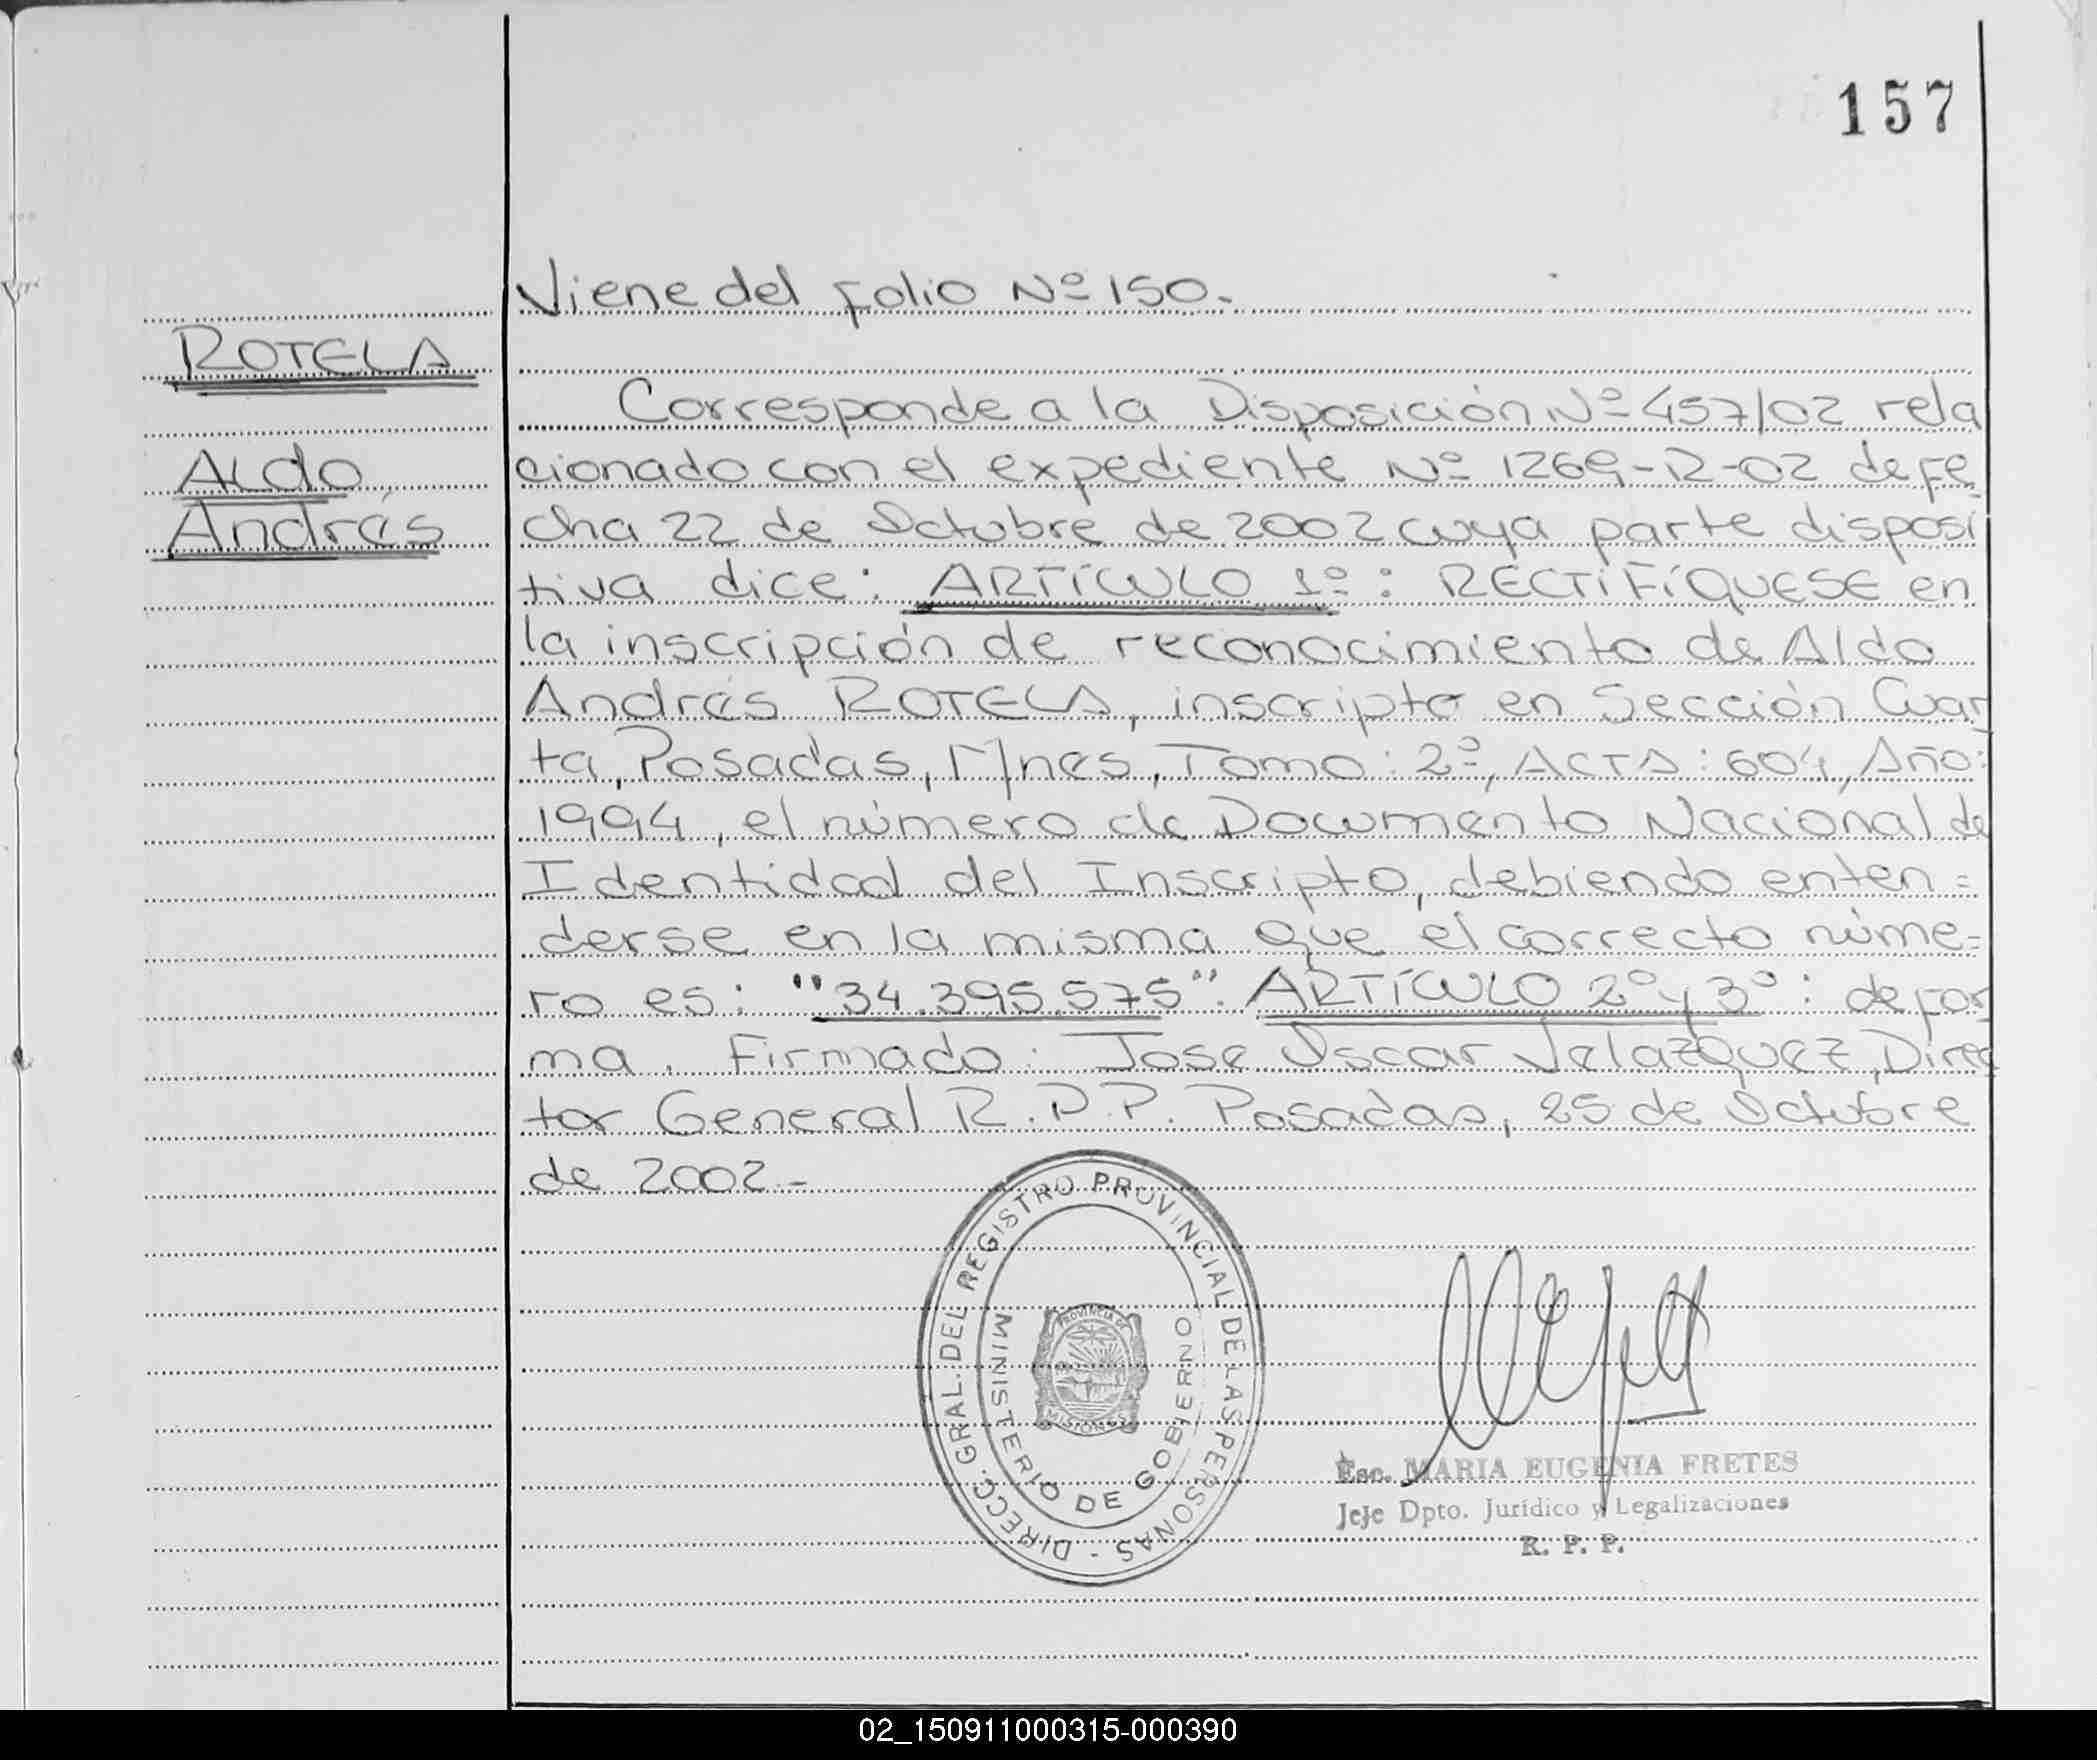 157
Viene del folio Nº 150.
ROTELA
Corresponde a la Disposición Nº 457/02 rela
Aldo
cionado con el expediente Nº 1269-R-02 de fe
Andrés
cha 22 de Octubre de 2002 cuya parte disposi
tiva dice: ARTÍCULO 1º: RECTIFÍQUESE en
la inscripción de reconocimiento de Aldo
Andrés ROTELA, inscripto en Sección Cuar
ta, Posadas, M/nes, Tomo: 2º, ACTA: 604, Año:
1994, el número de Documento Nacional de
Identidad del Inscripto, debiendo enten=
derse en la misma que el correcto núme=
ro es: "34.395.575". ARTÍCULO 2º y 3º: de for
ma. Firmado: Jose Oscar Velazquez, Direc
tor General R.P.P. Posadas, 25 de Octubre
de 2002.-
DIRECC. GRAL. DEL REGISTRO PROVINCIAL DE LAS PERSONAS -
MINISTERIO DE GOBIERNO
PROVINCIA DE
MISIONES
Esc. MARIA EUGENIA FRETES
Jefe Dpto. Jurídico y Legalizaciones
R. P. P.
02_150911000315-000390